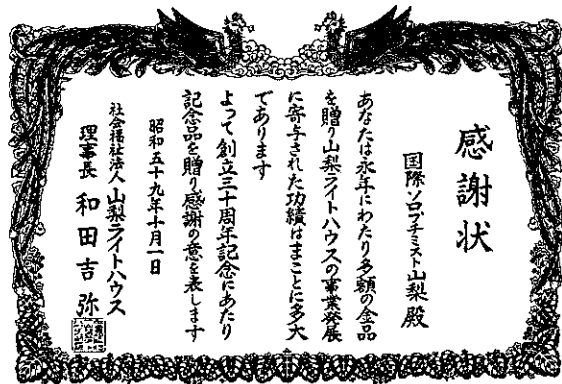 感謝状
国際ソロプチミスト山梨殿
あなたは永年にわたり多額の金品
を贈り山梨ライトハウスの事業発展
に寄与された功績はまことに多大
であります
よって創立三十周年記念にあたり
記念品を贈り感謝の意を表します
昭和五十九年十月一日
社会福祉法人山梨ライトハウス
理事長 和田吉弥